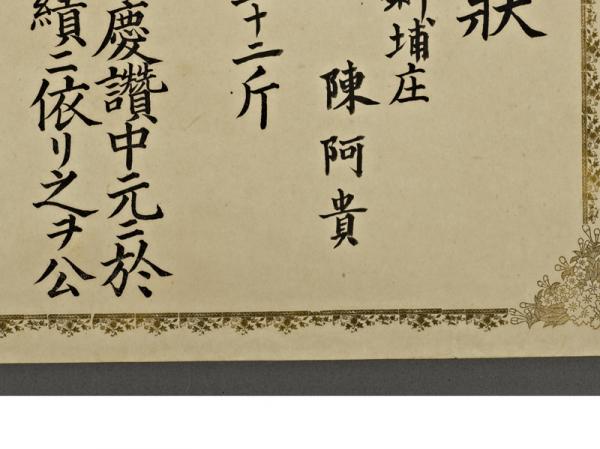 狀
埔庄
陳阿貴
十二斤
慶讚中元ニ於
績ニ依リ之ヲ公